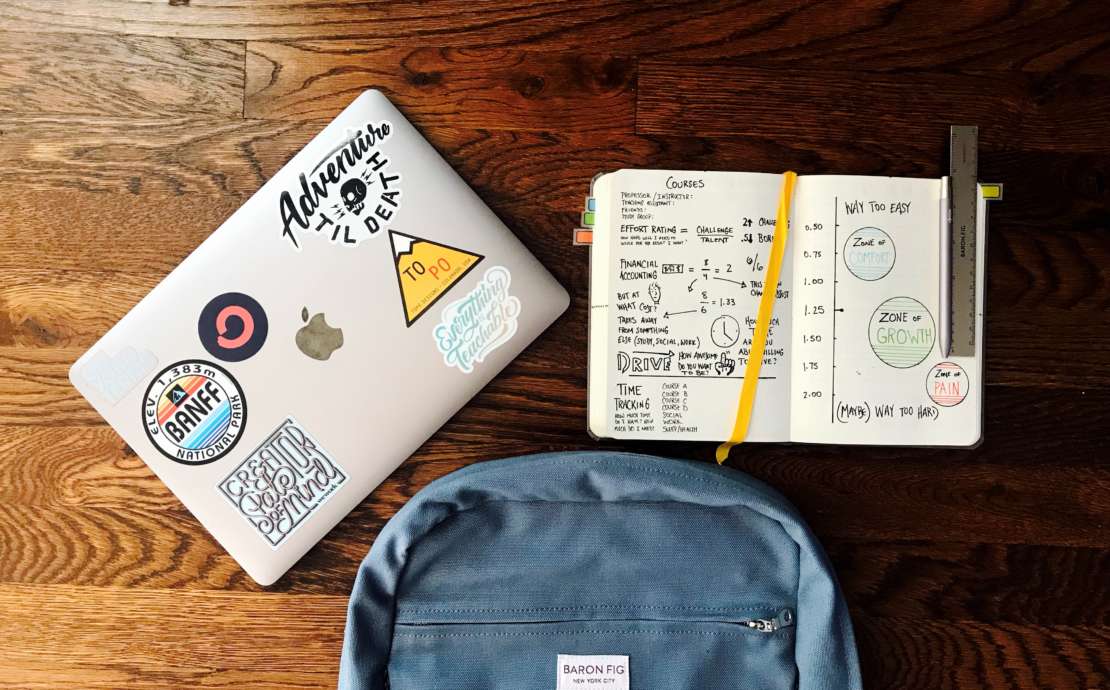 Adventure
TIL DEATH
TOPO
Everything
is Teachable
ELEV. 1,383m
BANFF
NATIONAL PARK
CREATOR
State
of Mind
COURSES
PROFESSOR / INSTRUCTOR:
TEACHING ASSISTANT:
FRIENDS:
STUDY GROUP:
EFFORT RATING = CHALLENGE
TALENT
HOW MUCH WILL I NEED TO
WORK FOR THE RESULT I WANT.
2↑
.5↓
FINANCIAL
ACCOUNTING
= 8
4 = 2
6/6
BUT AT
WHAT COST?
8
6 = 1.33
TAKES AWAY
FROM SOMETHING
ELSE (STUDY, SOCIAL, WORK)
DRIVE
HOW AWESOME
DO YOU WANT
TO BE?
TIME
TRACKING
HOW MUCH TIME
DO I HAVE? HOW
MUCH DO I NEED?
COURSE A
COURSE B
COURSE C
COURSE D
SOCIAL
WORK
SLEEP/HEALTH
WAY TOO EASY
0.50
0.75
1.00
1.25
1.50
1.75
2.00
ZONE OF
COMFORT
ZONE OF
GROWTH
ZONE OF
PAIN
(MAYBE) WAY TOO HARD
BARON FIG
BARON FIG
NEW YORK CITY